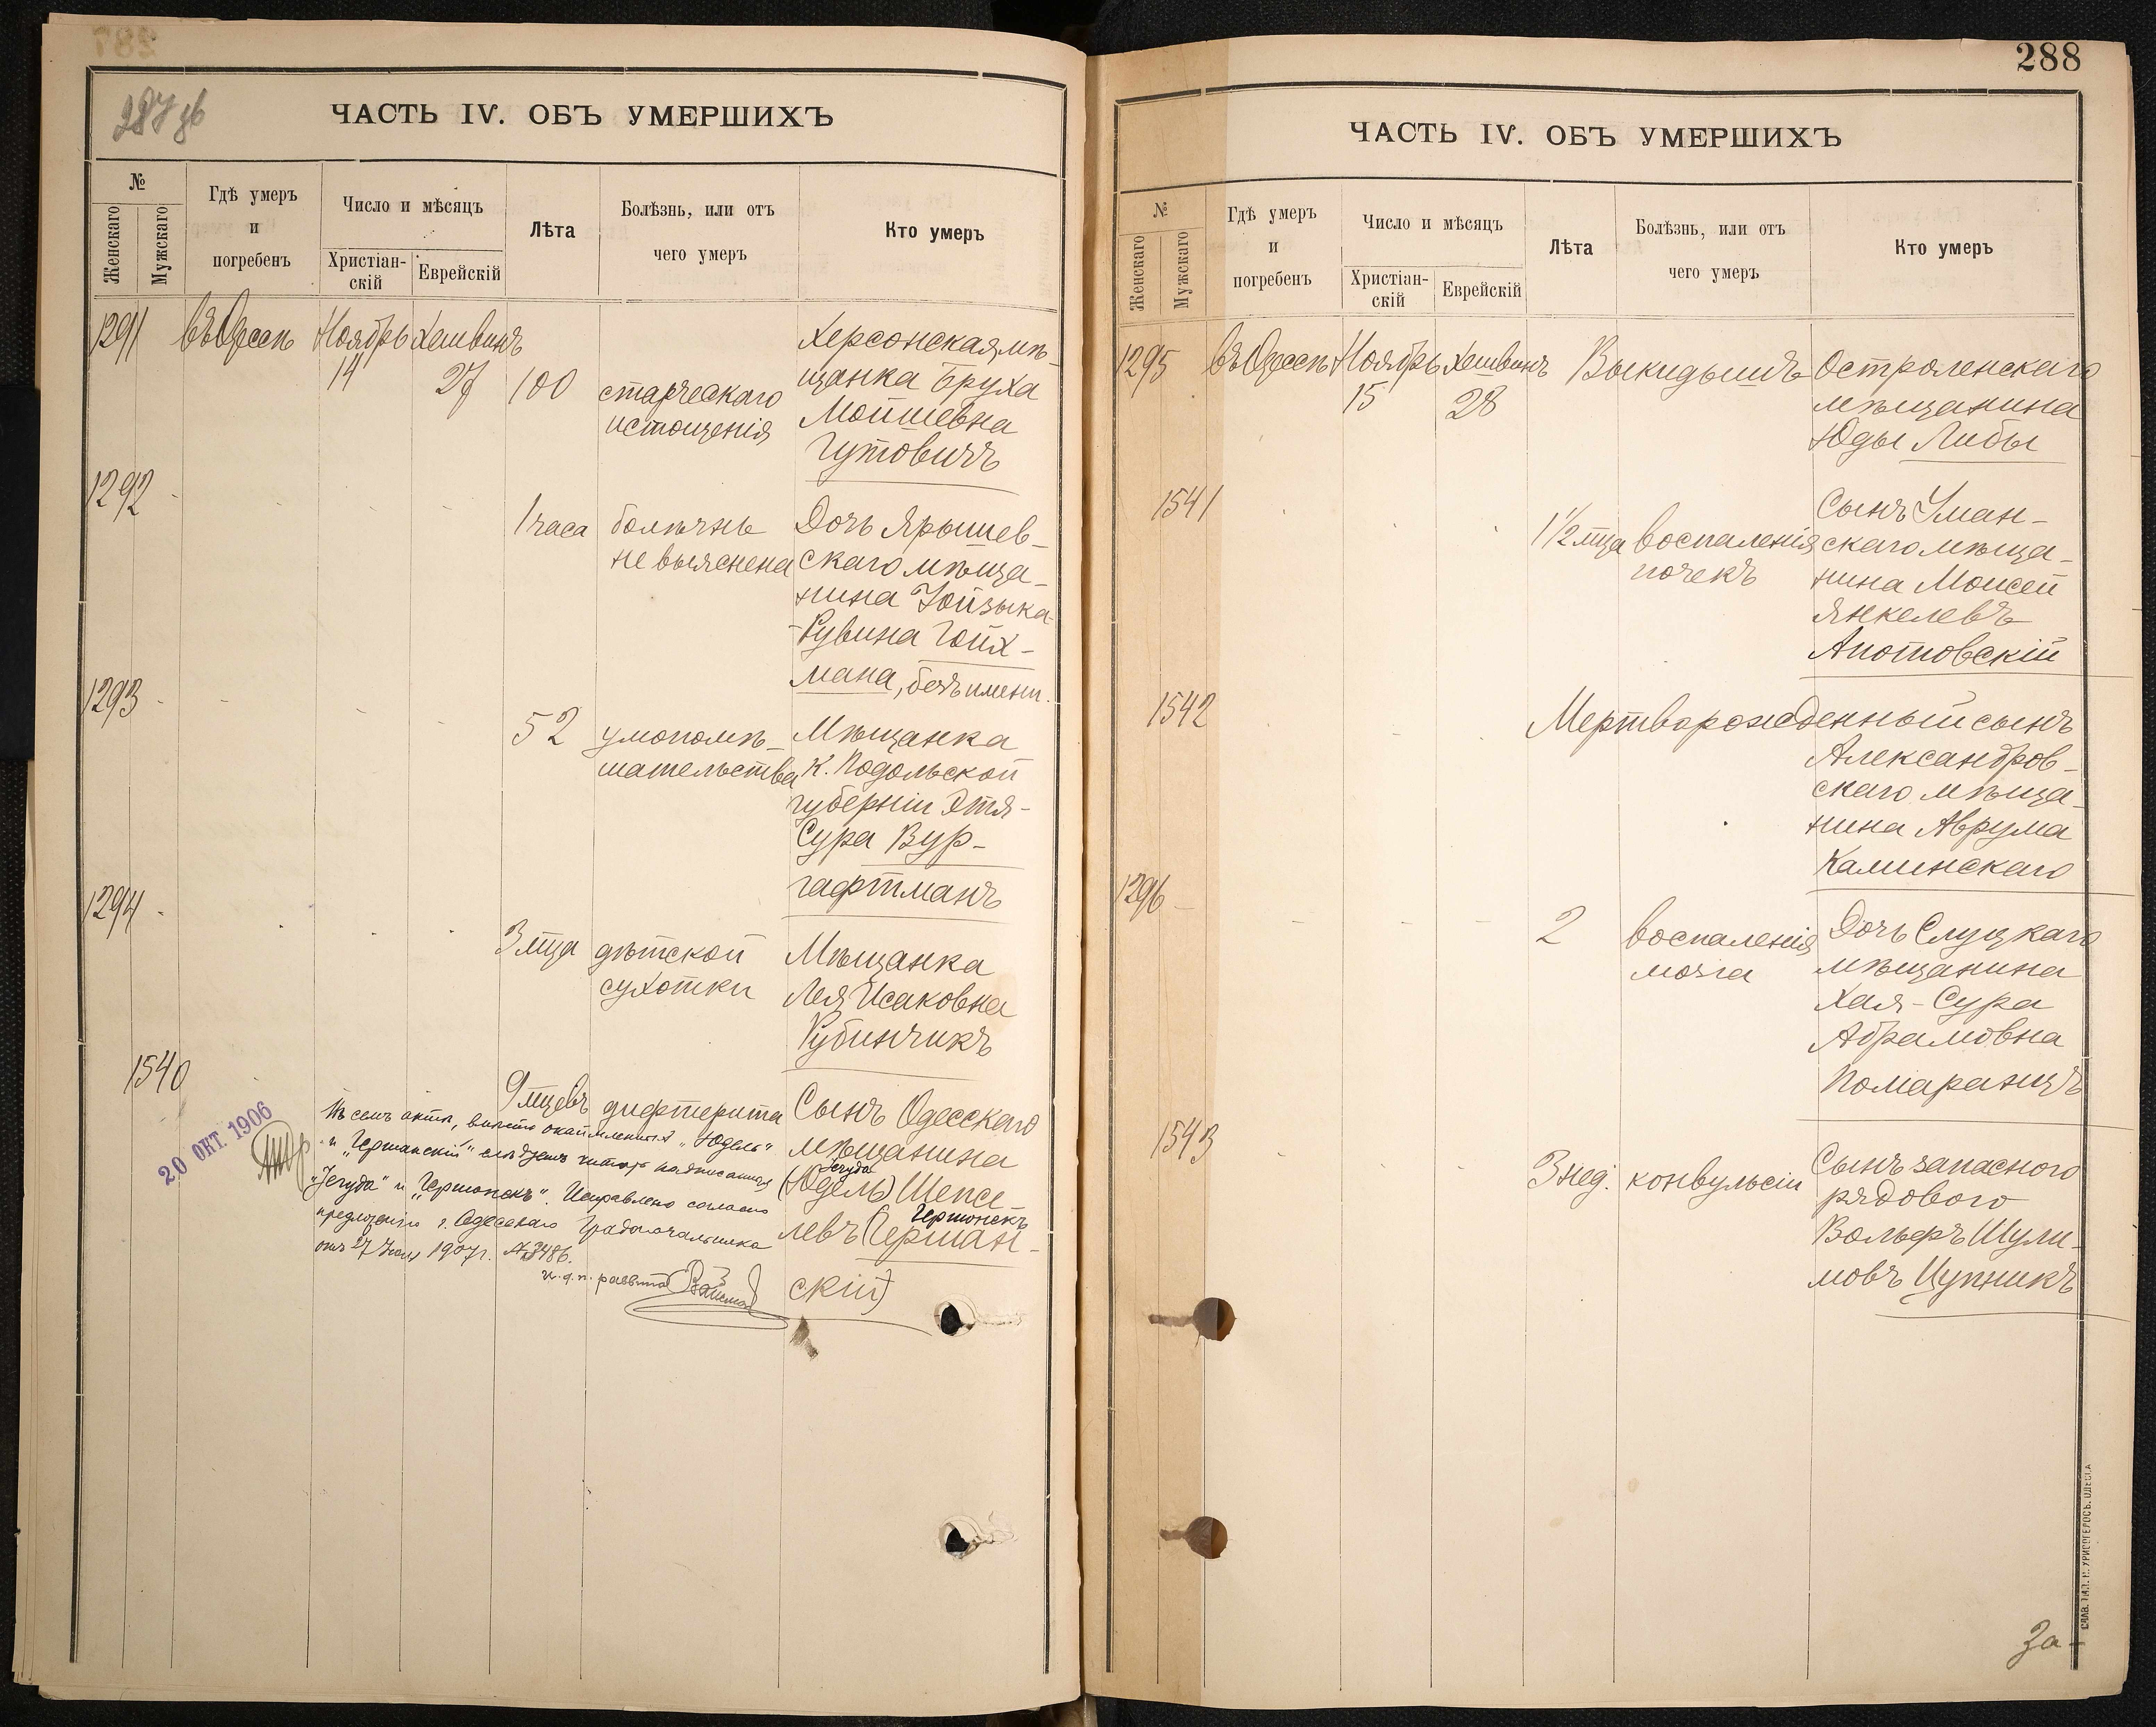 287 зв
ЧАСТЬ IV. ОБЪ УМЕРШИХЪ
№
Женскаго
Мужскаго
Гдѣ умеръ
и
погребенъ
Число и мѣсяцъ
Христіан-
скій
Еврейскій
Лѣта
Болѣзнь, или отъ
чего умеръ
Кто умеръ
1291 въ Одессѣ Ноябрь Хешвинъ
14 27 100 старческаго
истощенія
Херсонская мѣ-
щанка Бруха
Мойшевна
Гутовичъ
1292
1 часа болѣзнь
не выяснена
Дочь Ярышев-
скаго мѣща-
нина Зойзыка-
Рувина Гойх-
мана, безъ имени.
1293
52 умопомѣ-
шательства
Мѣщанка
К. Подольской
губерніи Этя-
Сура Вур-
гафтманъ
1294
3 мца дѣтской
сухотки
Мѣщанка
Лея Исаковна
Рубинчикъ
1540
9 мцевъ дифтерита
Сынъ Одесскаго
мѣщанина
Іегуда
(Юдель) Шепсе-
Гершонокъ
левъ (Герман-
скій)
20 ОКТ. 1906
Въ семъ актѣ, вмѣсто окаймленныхъ „Юдель"
и „Германскій" слѣдуетъ читать надписанныя
„Іегуда" и „Гершонокъ". Исправлено согласно
предложенію г. Одесскаго Градоначальника
отъ 27 1907 г. № 3486.
и. д. п. раввина
288
ЧАСТЬ IV. ОБЪ УМЕРШИХЪ
№
Женскаго
Мужскаго
Гдѣ умеръ
и
погребенъ
Число и мѣсяцъ
Христіан-
скій
Еврейскій
Лѣта
Болѣзнь, или отъ
чего умеръ
Кто умеръ
1295 въ Одессѣ Ноябрь Хешвинъ Выкидышъ
15 28
Остроленскаго
мѣщанина
Юды Либы
1541
1½ мца воспаленія
почекъ
Сынъ Уман-
скаго мѣща-
нина Моисей
Янкелевъ
Апотовскій
1542
Мертворожденный сынъ
Александров-
скаго мѣща-
нина Аврума
Каминскаго
1296
2 воспаленія
мозга
Дочь Слуцкаго
мѣщанина
Хая-Сура
Абрамовна
Помаранцъ
1543
3 нед. конвульсіи
Сынъ запасного
рядового
Вольфъ Шули-
мовъ Цупникъ
За-
СЛАВ. ТИП. Н. ХРИСОГЕЛОСЪ. ОДЕССА